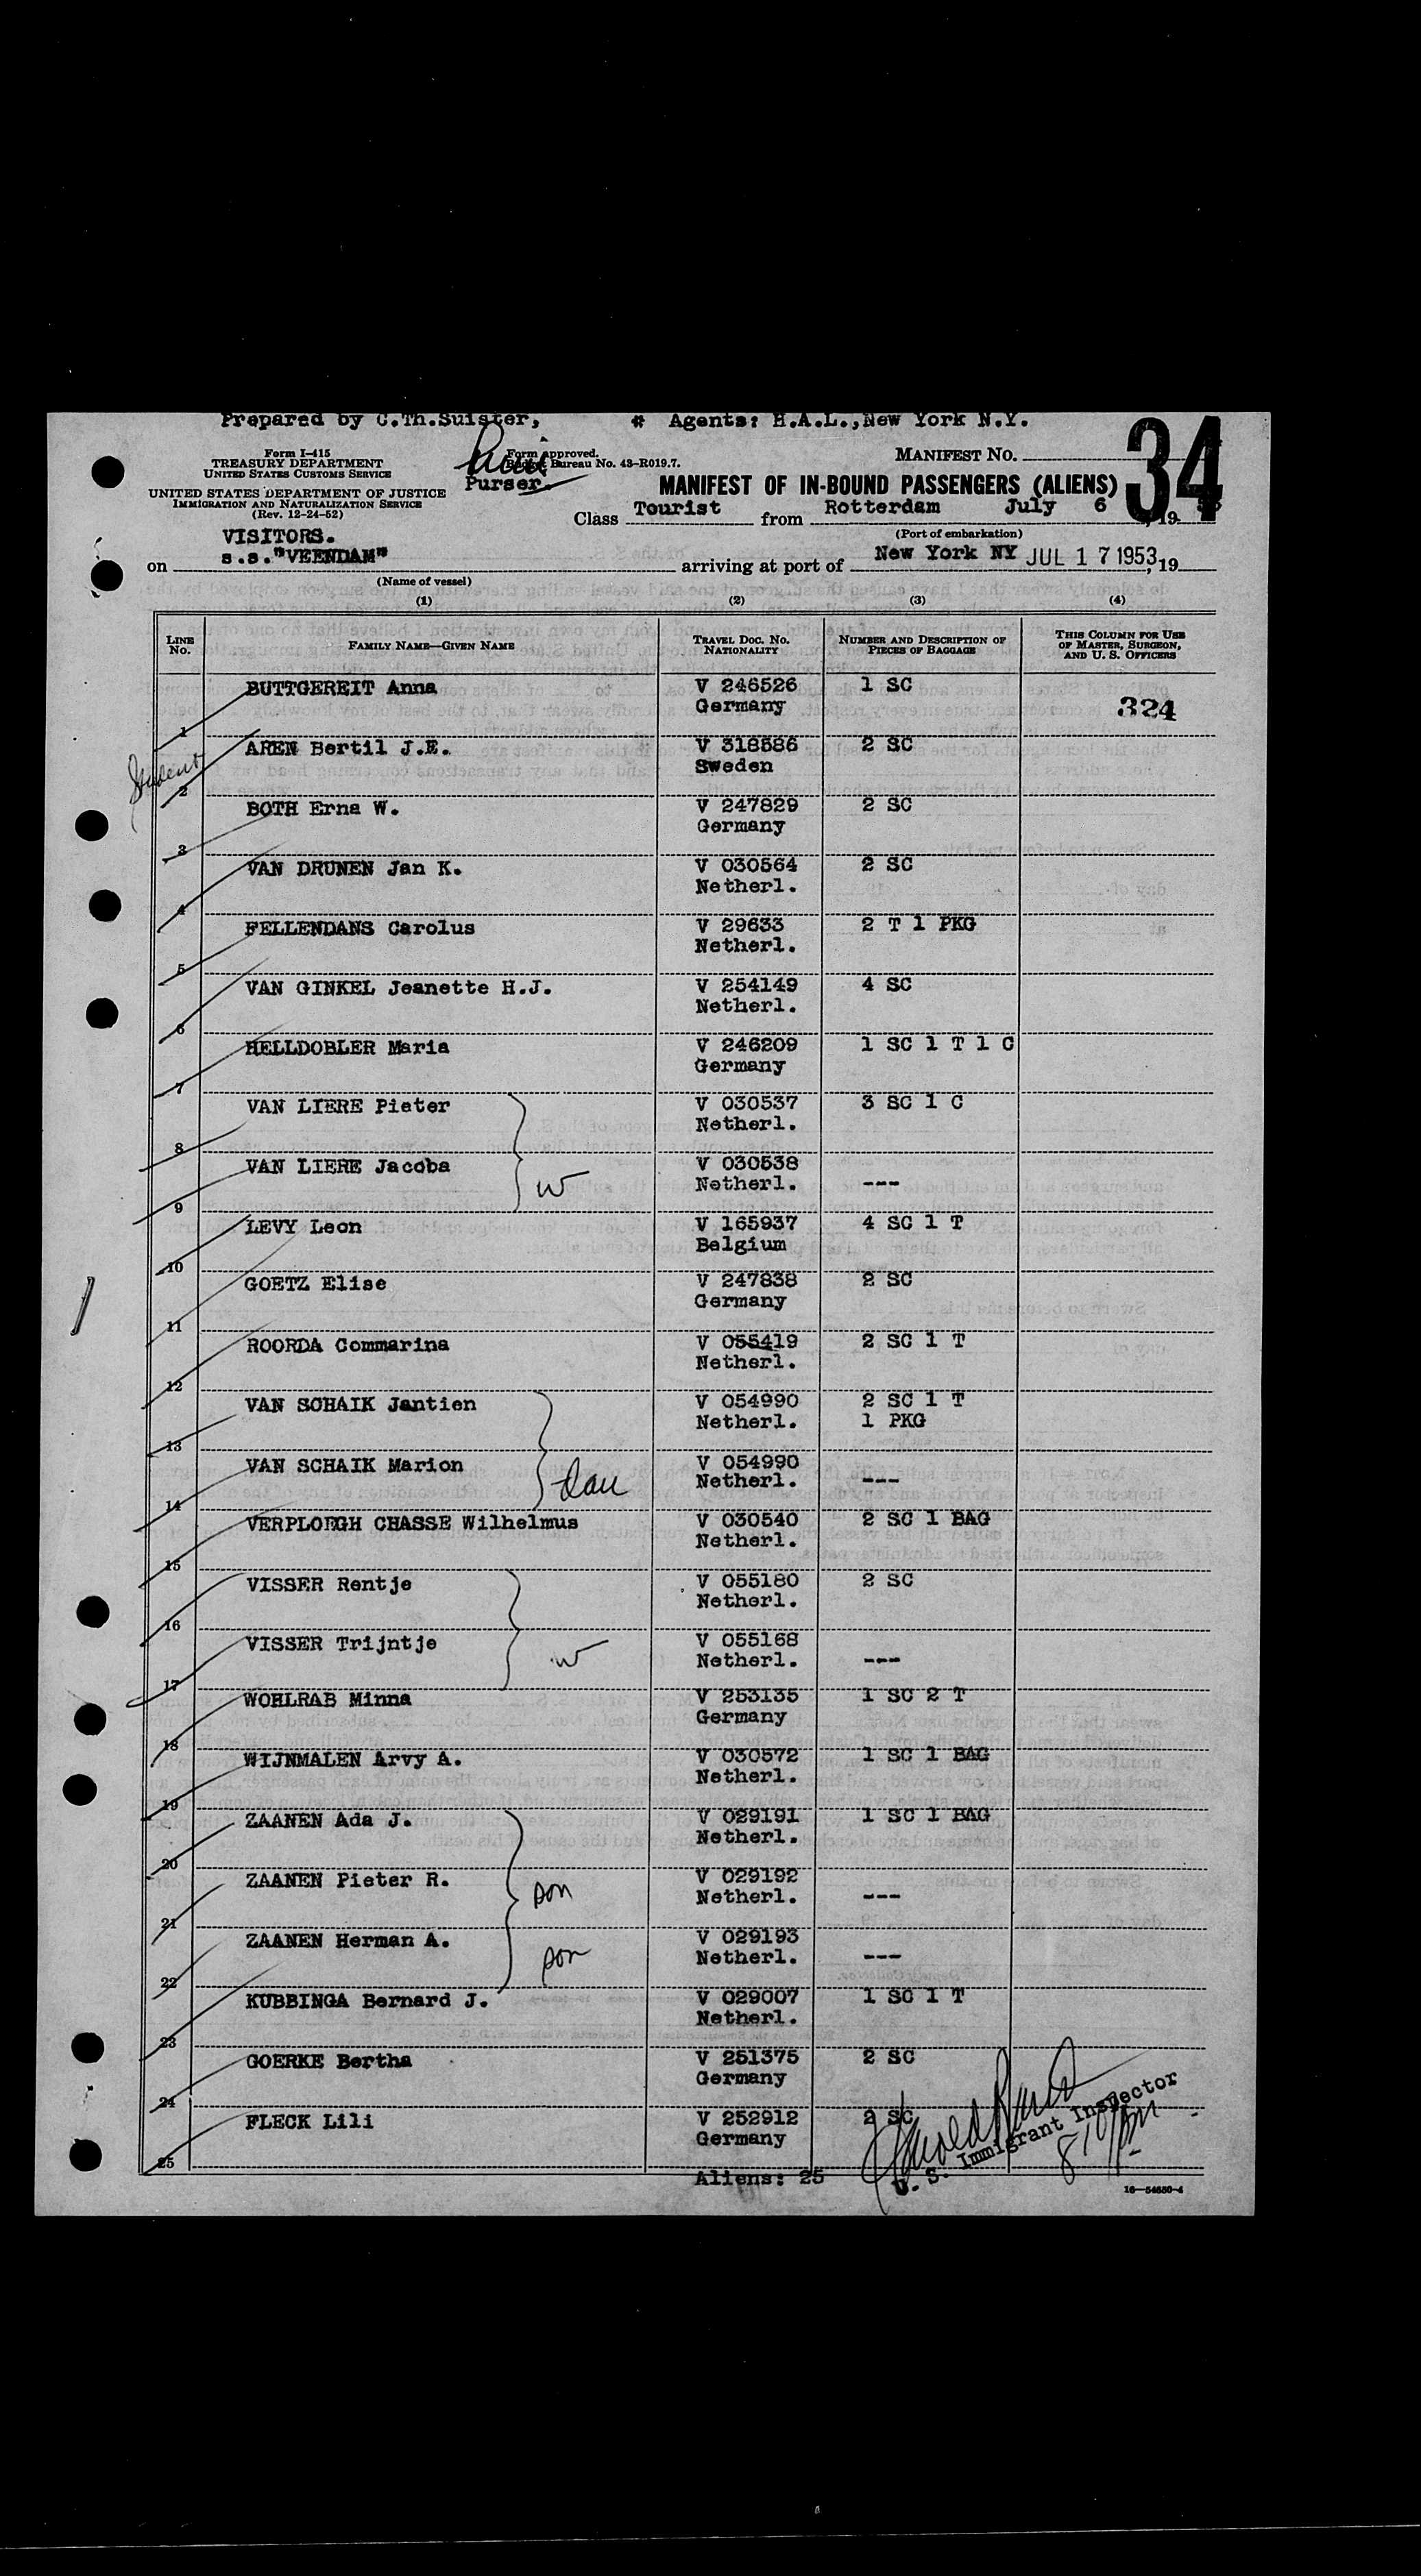 Prepared by C.Th.Suister, # Agents: H.A.L.,New York N.Y.
Form I-415
TREASURY DEPARTMENT
UNITED STATES CUSTOMS SERVICE
UNITED STATES DEPARTMENT OF JUSTICE
IMMIGRATION AND NATURALIZATION SERVICE
(Rev. 12-24-52)
Form approved.
Bureau No. 43-R019.7.
Purser.
MANIFEST NO.
34
MANIFEST OF IN-BOUND PASSENGERS (ALIENS)
Class Tourist from Rotterdam July 6, 19
(Port of embarkation)
VISITORS.
on s.s."VEENDAM" arriving at port of New York NY JUL 17 1953, 19
(Name of vessel)
(1) (2) (3) (4)
LINE NO. FAMILY NAME—GIVEN NAME TRAVEL DOC. NO. NATIONALITY NUMBER AND DESCRIPTION OF PIECES OF BAGGAGE THIS COLUMN FOR USE OF MASTER, SURGEON, AND U. S. OFFICERS
1 BUTTGEREIT Anna V 246526 1 SC
Germany 324
Student
2 AREN Bertil J.E. V 318586 2 SC
Sweden
3 BOTH Erna W. V 247829 2 SC
Germany
4 VAN DRUNEN Jan K. V 030564 2 SC
Netherl.
5 FELLENDANS Carolus V 29633 2 T 1 PKG
Netherl.
6 VAN GINKEL Jeanette H.J. V 254149 4 SC
Netherl.
7 HELLDOBLER Maria V 246209 1 SC 1 T 1 C
Germany
8 VAN LIERE Pieter V 030537 3 SC 1 C
Netherl.
9 VAN LIERE Jacoba w V 030538
Netherl. ---
10 LEVY Leon V 165937 4 SC 1 T
Belgium
11 GOETZ Elise V 247838 2 SC
Germany
12 ROORDA Commarina V 055419 2 SC 1 T
Netherl.
13 VAN SCHAIK Jantien V 054990 2 SC 1 T
Netherl. 1 PKG
14 VAN SCHAIK Marion dau V 054990
Netherl. ---
15 VERPLOEGH CHASSE Wilhelmus V 030540 2 SC 1 BAG
Netherl.
16 VISSER Rentje V 055180 2 SC
Netherl.
17 VISSER Trijntje w V 055168
Netherl. ---
18 WOHLRAB Minna V 253135 1 SC 2 T
Germany
19 WIJNMALEN Arvy A. V 030572 1 SC 1 BAG
Netherl.
20 ZAANEN Ada J. V 029191 1 SC 1 BAG
Netherl.
21 ZAANEN Pieter R. son V 029192
Netherl. ---
22 ZAANEN Herman A. son V 029193
Netherl. ---
23 KUBBINGA Bernard J. V 029007 1 SC 1 T
Netherl.
24 GOERKE Bertha V 251375 2 SC
Germany
25 FLECK Lili V 252912 2 SC
Germany
Aliens: 25
U. S. Immigrant Inspector
16—54650-4